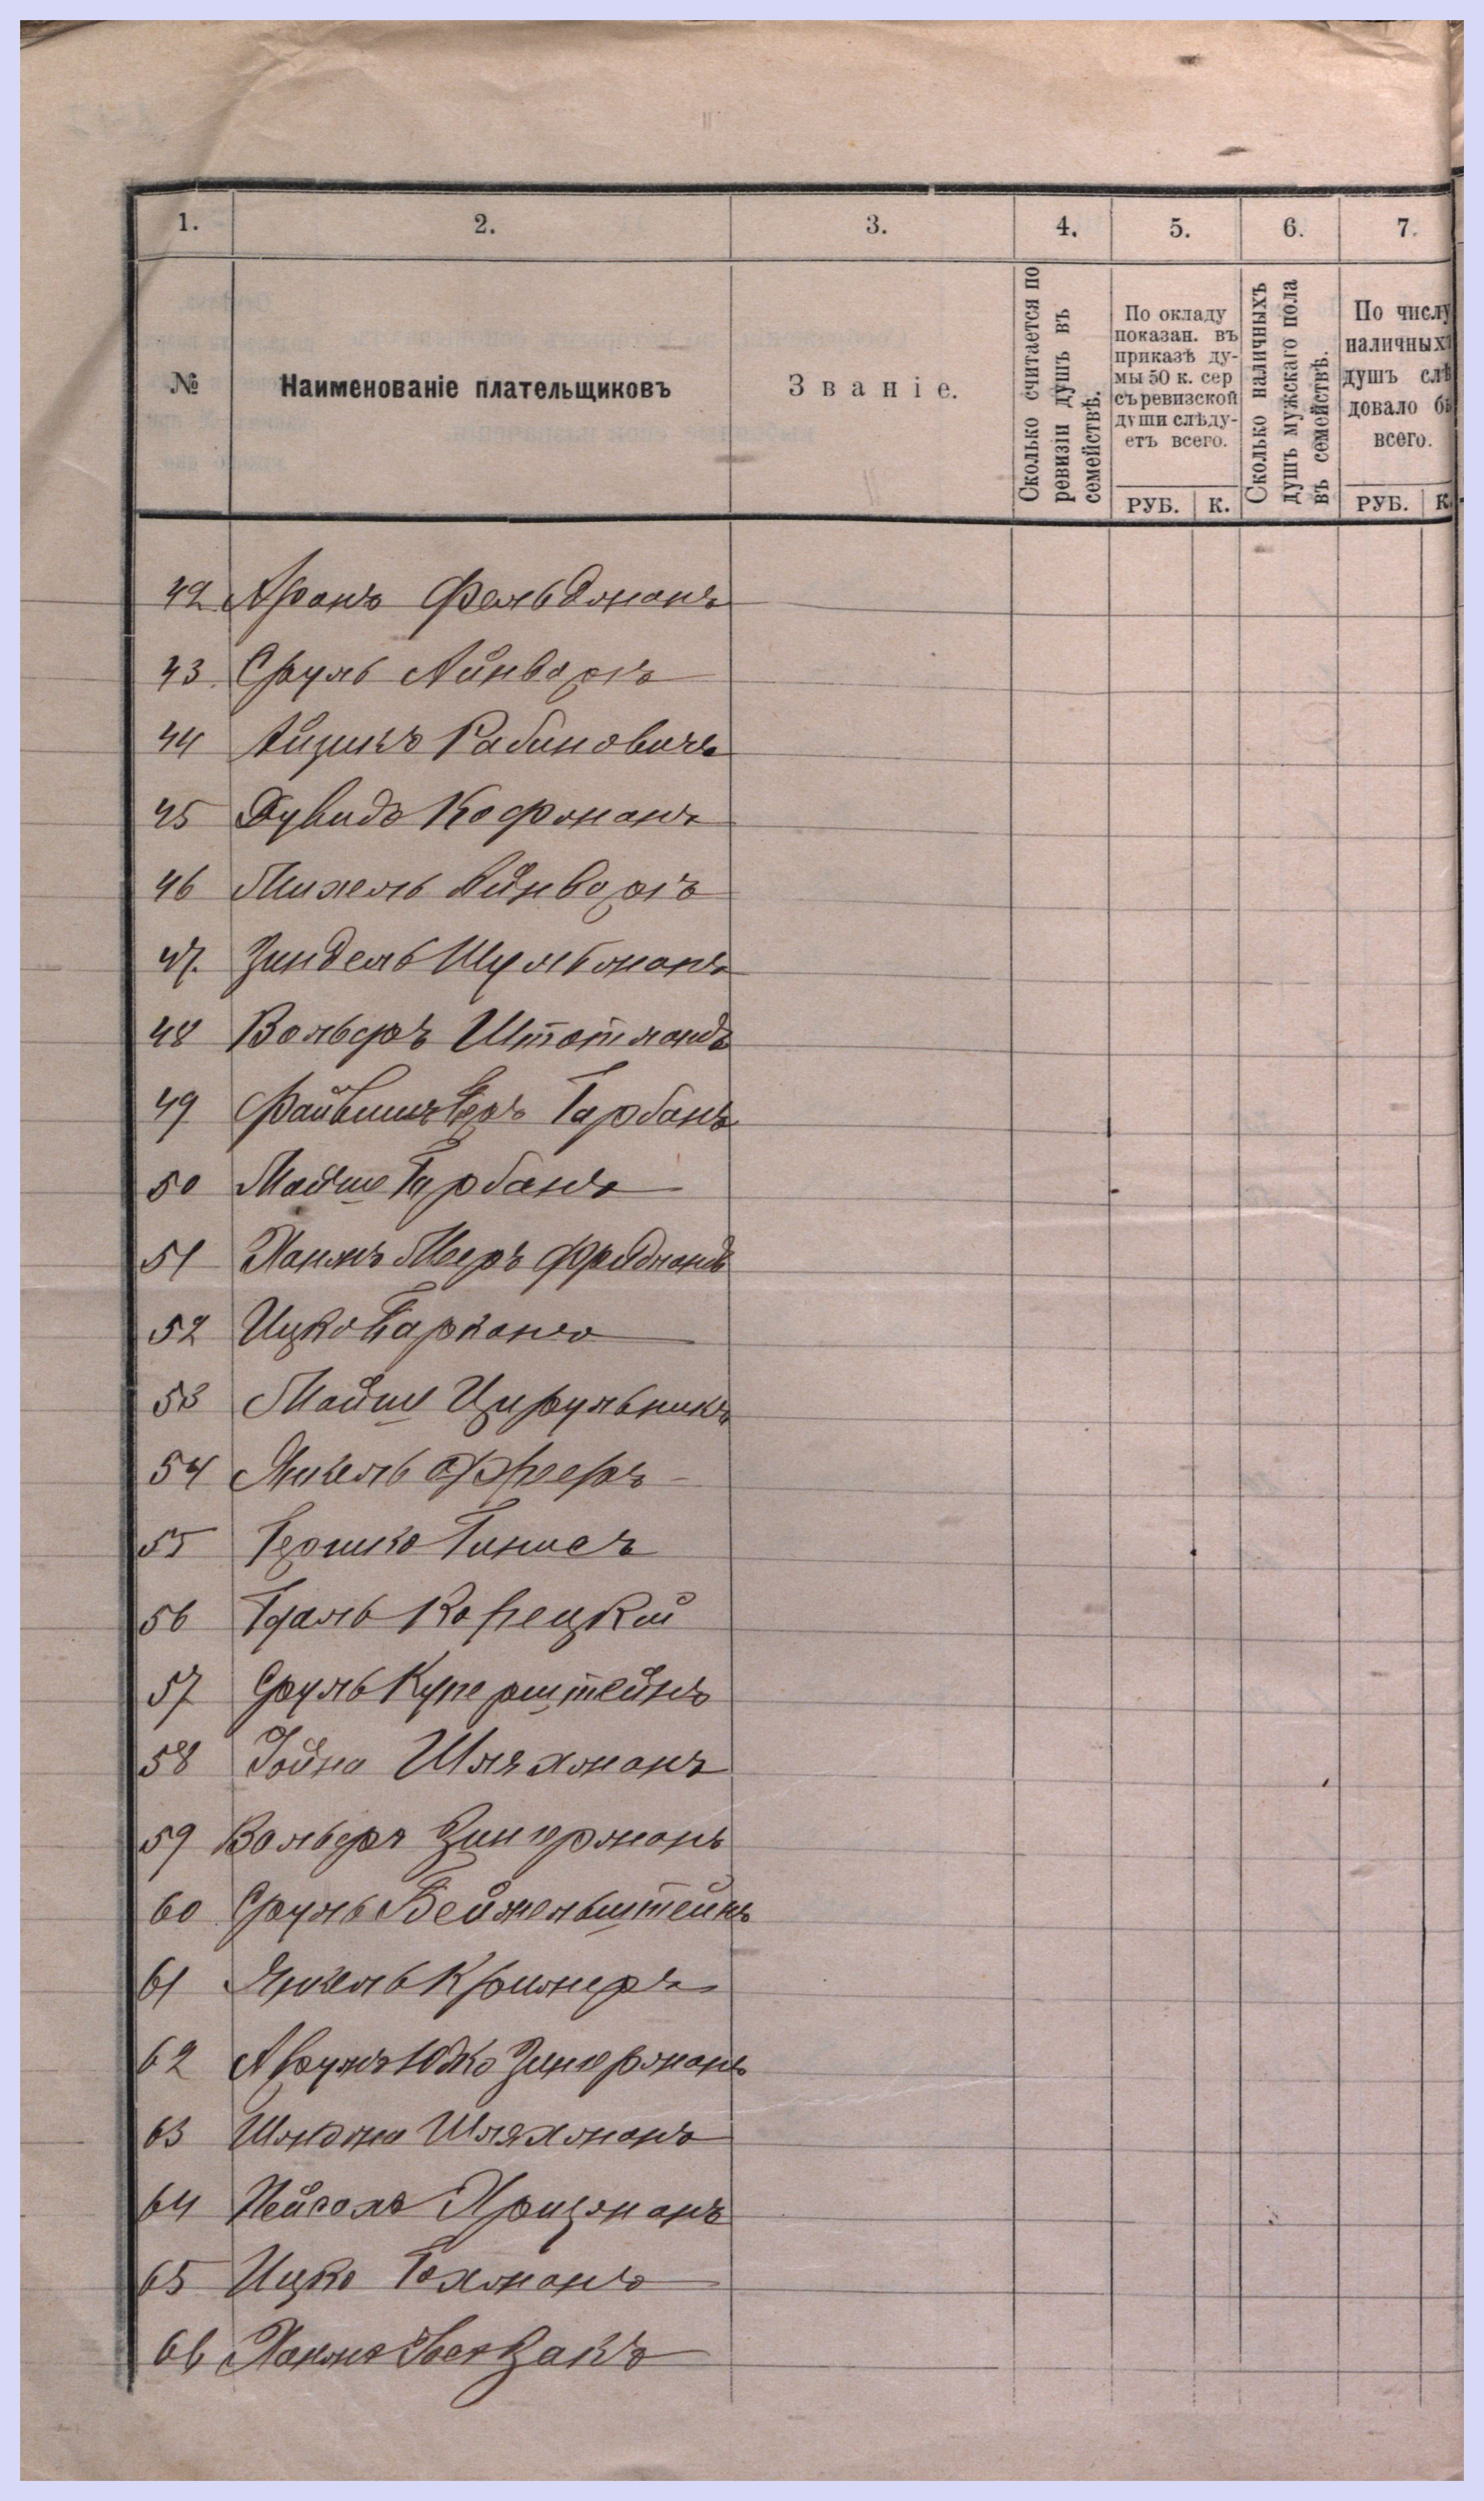 1. 2. 3. 4. 5. 6. 7.
№
Наименованіе плательщиковъ
Званіе.
Сколько считается по
ревизіи душъ въ
семействѣ.
По окладу
показан. въ
приказѣ ду-
мы 50 к. сер
съ ревизской
души слѣду-
етъ всего.
РУБ. К.
Сколько наличныхъ
душъ мужскаго пола
въ семействѣ.
По числу
наличныхъ
душъ слѣ
довало бы
всего.
РУБ. К.
42 Аронъ Фельдманъ
43 Сруль Айнворгъ
44 Айзикъ Рабиновичъ
45 Дувидъ Кофманъ
46 Михель Айнворгъ
47. Зиндель Шульманъ
48 Вольфъ Штотландъ
49 Файвишъ Геръ Гарбанъ
50 Мойше Гарбанъ
51 Хаимъ Мееръ Фридманъ
52 Ицко Барканъ
53 Мойше Цирульникъ
54 Янкель
55 Гершко Гинисъ
56 Корецкий
57 Сруль Куперштейнъ
58 Іойна Шляхманъ
59 Вольфъ Зингерманъ
60 Сруль Беймельштейнъ
61 Янкель Кримеръ
62 Аврумъ Юдко Зингерманъ
63 Шлиома Шляхманъ
64 Пейсахъ Хрицманъ
65 Ицко Гохманъ
66 Хаимъ Іосъ Закъ